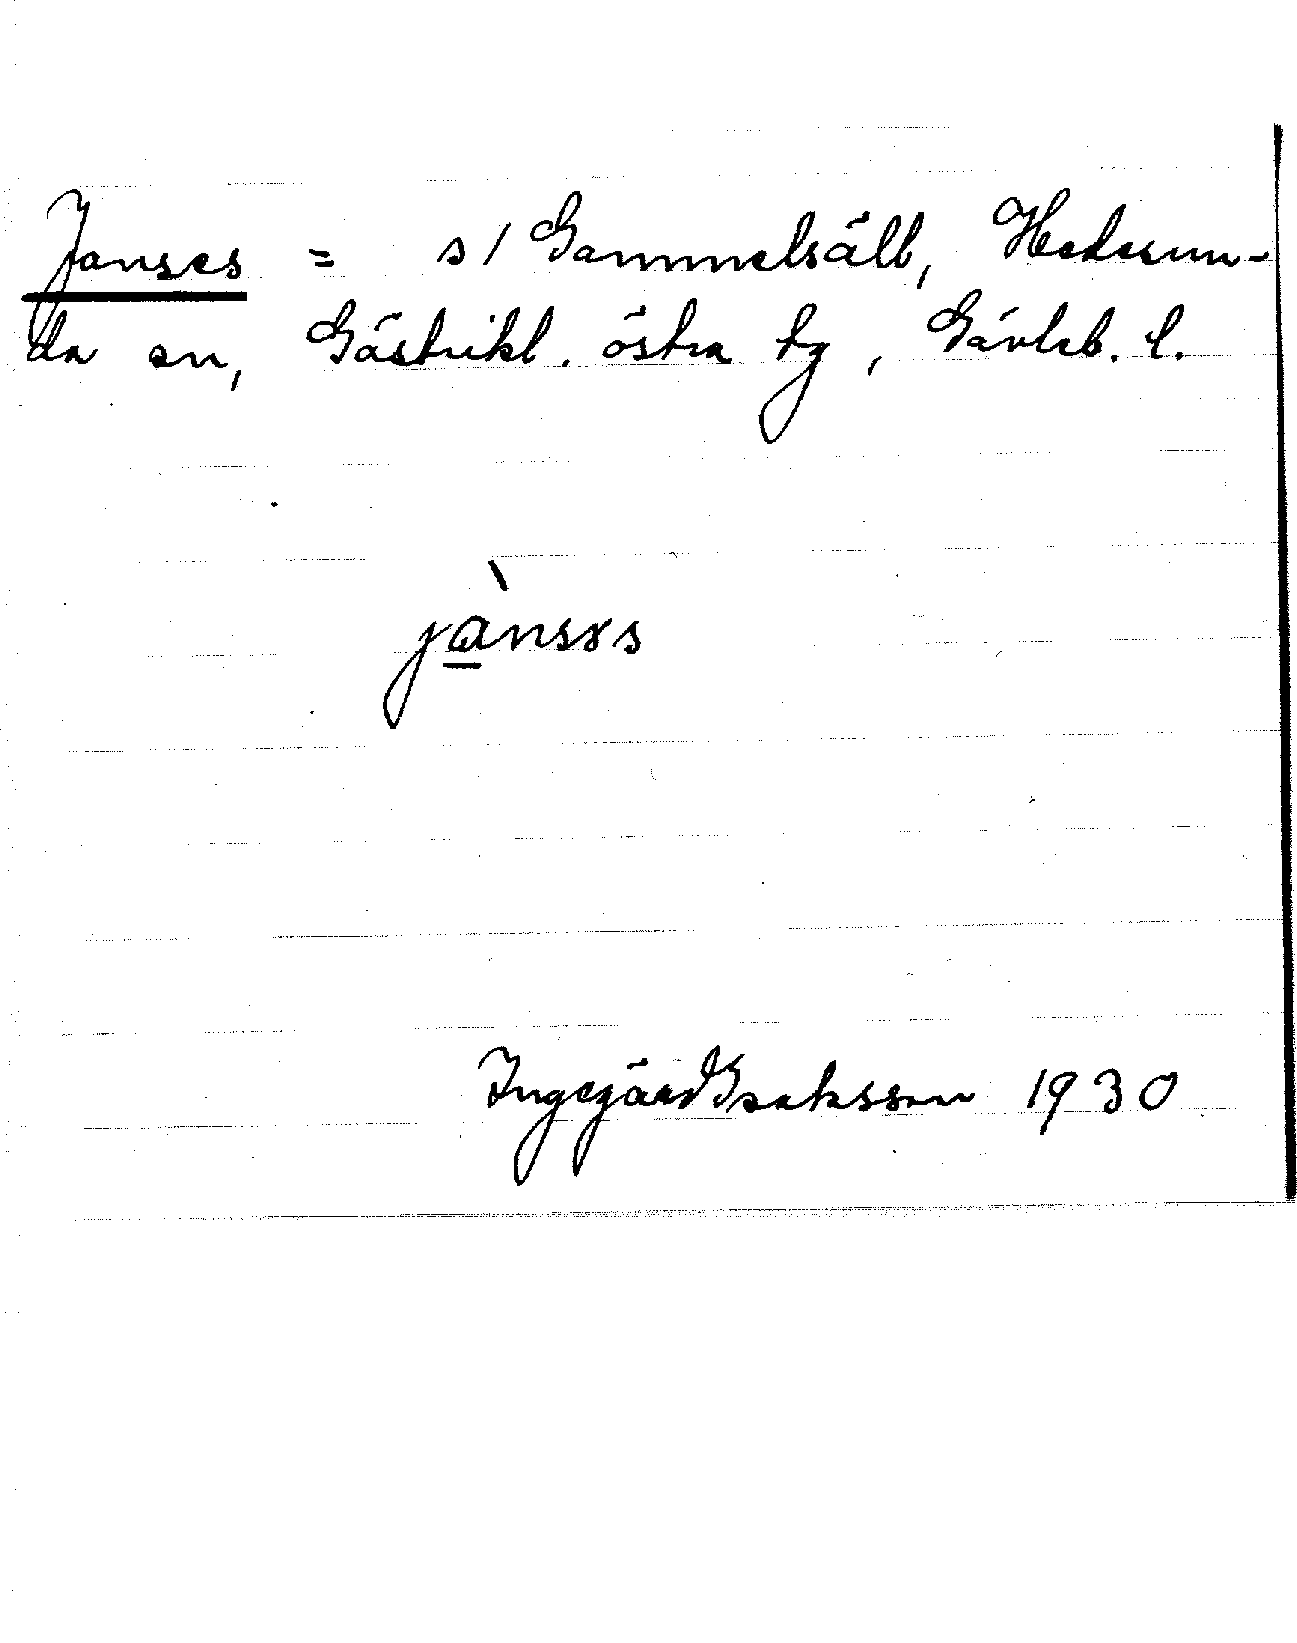 Janses = s/ Gammelsäll, Hedesun-
da sn, Gästrikl. östra tg, Gävleb. l.
jànsɤs
Ingegärd Isaksson 1930